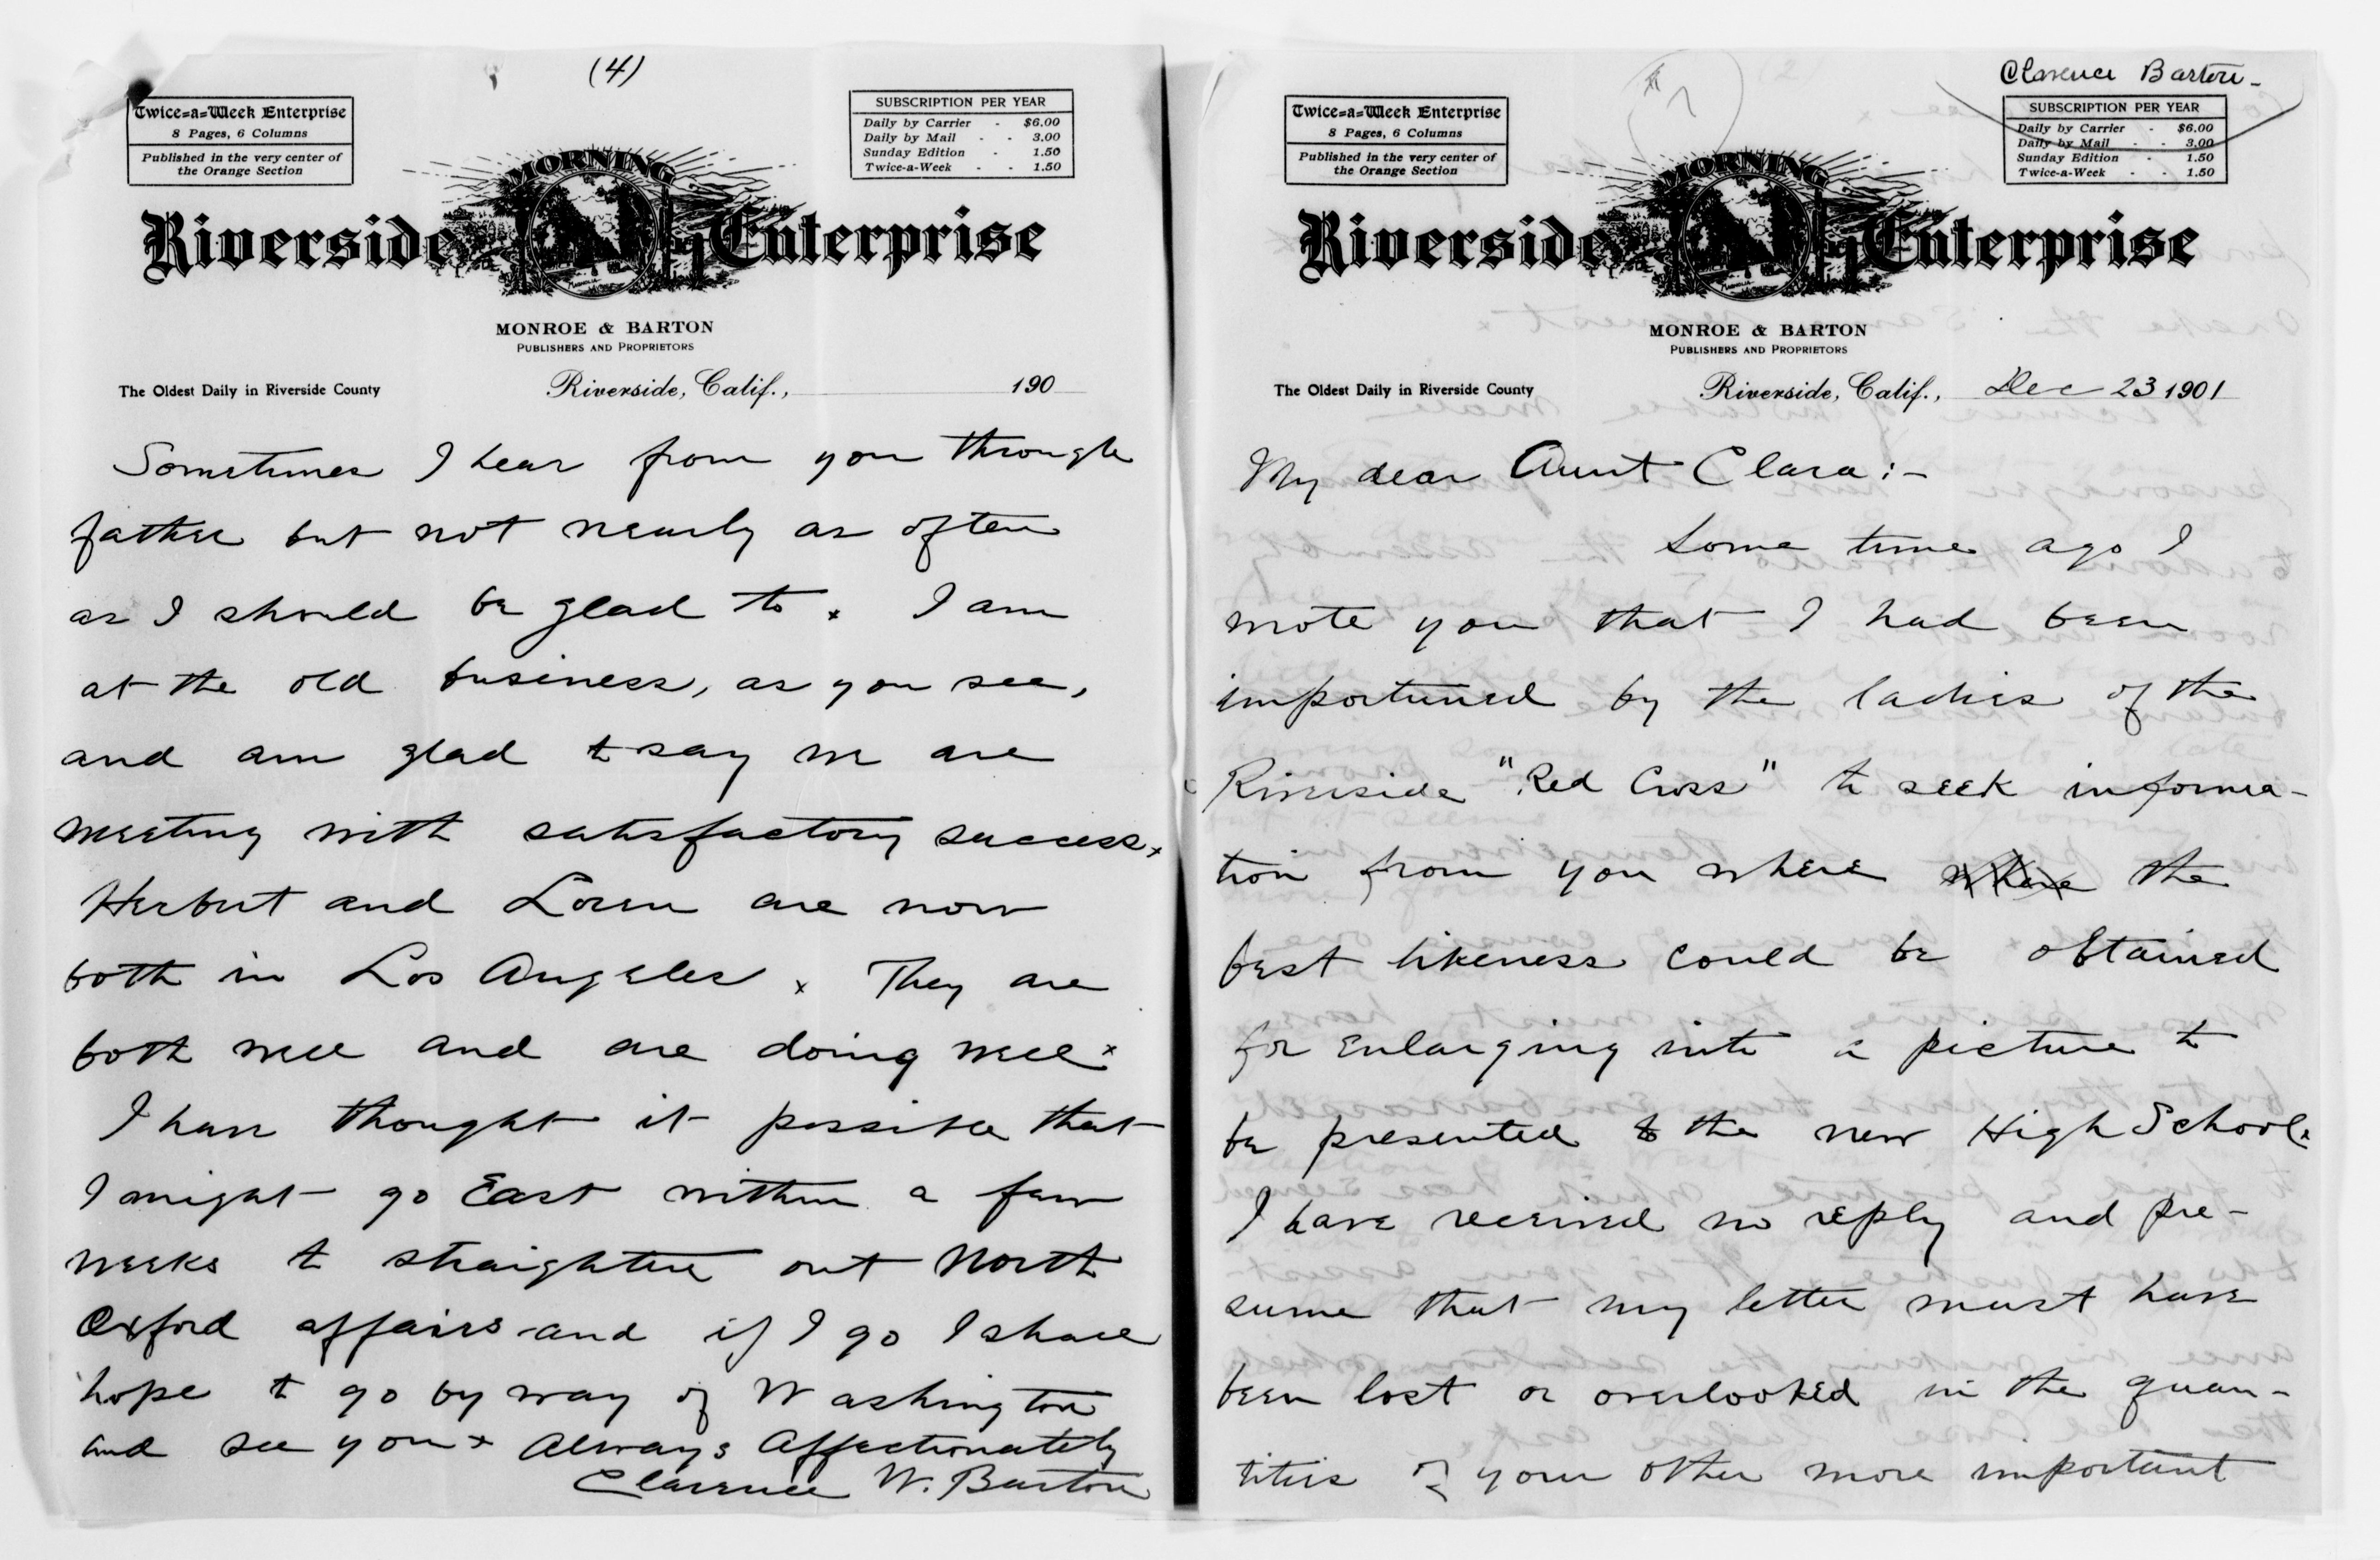 (4)
Twice-a-Week Enterprise
8 Pages, 6 Columns
Published in the very center of
the Orange Section
SUBSCRIPTION PER YEAR
Daily by Carrier - $6.00
Daily by Mail - - 3.00
Sunday Edition - 1.50
Twice-a-Week - - 1.50
MORNING
Riverside Enterprise
MAGNOLIA
MONROE & BARTON
PUBLISHERS AND PROPRIETORS
The Oldest Daily in Riverside County
Riverside, Calif., 190
Sometimes I hear from you through
father but not nearly as often
as I should be glad to x I am
at the old business, as you see,
and am glad to say we are
meeting with satisfactory success x
Herbert and Loren are now
both in Los Angeles x They are
both well and are doing well x
I have thought it possible that
I might go East within a few
weeks to straighten out North
Oxford affairs and if I go I shall
hope to go by way of Washington
and see you x Always Affectionately
Clarence W. Barton
Clarence Barton -
Twice-a-Week Enterprise
8 Pages, 6 Columns
Published in the very center of
the Orange Section
SUBSCRIPTION PER YEAR
Daily by Carrier - $6.00
Daily by Mail - - 3.00
Sunday Edition - 1.50
Twice-a-Week - - 1.50
MORNING
Riverside Enterprise
MAGNOLIA
MONROE & BARTON
PUBLISHERS AND PROPRIETORS
The Oldest Daily in Riverside County
Riverside, Calif., Dec 23 1901
My dear Aunt Clara:-
Some time ago I
wrote you that I had been
importuned by the ladies of the
Riverside "Red Cross" to seek informa-
tion from you where where the
best likeness could be obtained
for enlarging into a picture to
be presented to the new High School x
I have received no reply and pre-
sume that my letter must have
been lost or overlooked in the quan-
tities of your other more important